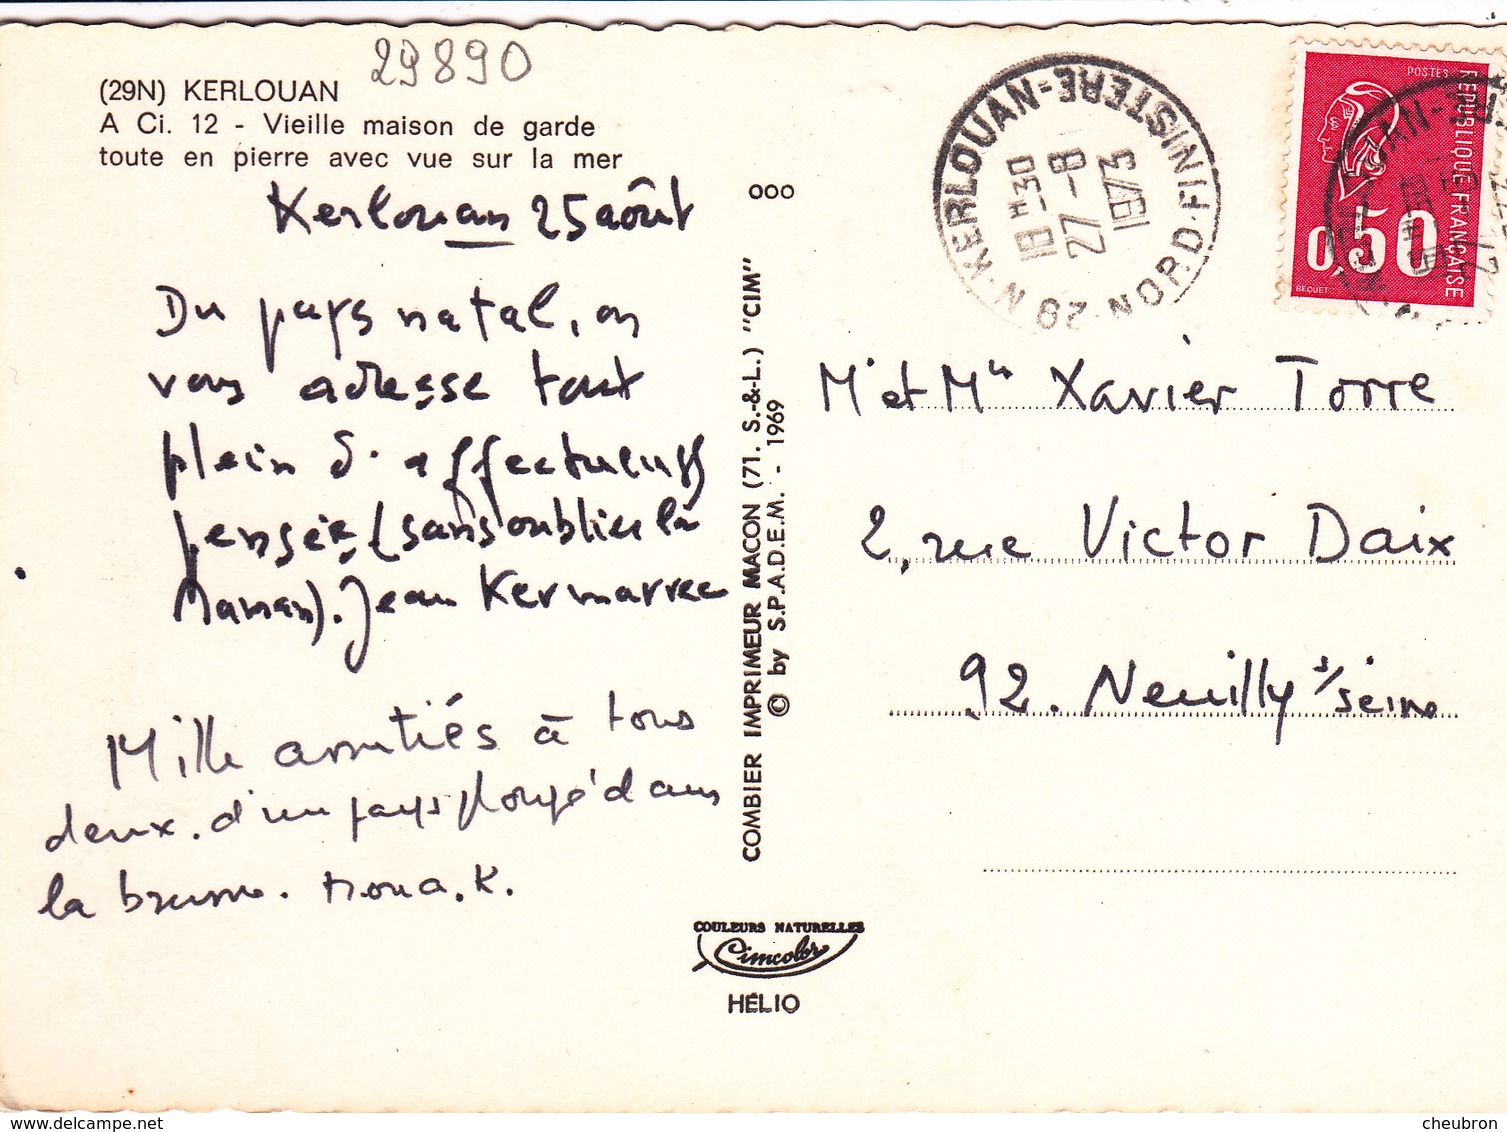 29890
(29N) KERLOUAN
A Ci. 12 - Vieille maison de garde
toute en pierre avec vue sur la mer
Kerlouan 25 août
Du pays natal, on
vous adresse tout
plein d'affectueuses
pensées (sans oublier la
Maman). Jean Kermarrec
Mille amitiés à tous
deux. d'un pays plongé dans
la brume. Mona. K.
000
COMBIER IMPRIMEUR MACON (71. S.-&-L.) "CIM"
© by S.P.A.D.E.M. - 1969
COULEURS NATURELLES
Cimcolor
HÉLIO
KERLOUAN-
29 N. NORD-FINISTERE
18H30
27-8
1975
POSTES
REPUBLIQUE FRANÇAISE
0,50
BEQUET
Mr et Mme Xavier Torre
2, rue Victor Daix
92. Neuilly s/seine
delcampe.net
cheubron